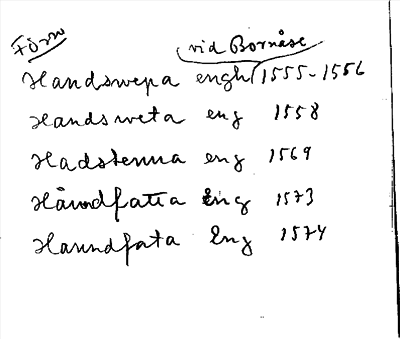 Försv.
vid Bornåse
Handswepa engh 1555-1556
Handsweta eng 1558
Hadstenna eng 1569
Håwdfatta Eng 1573
Haundfata Eng 1574